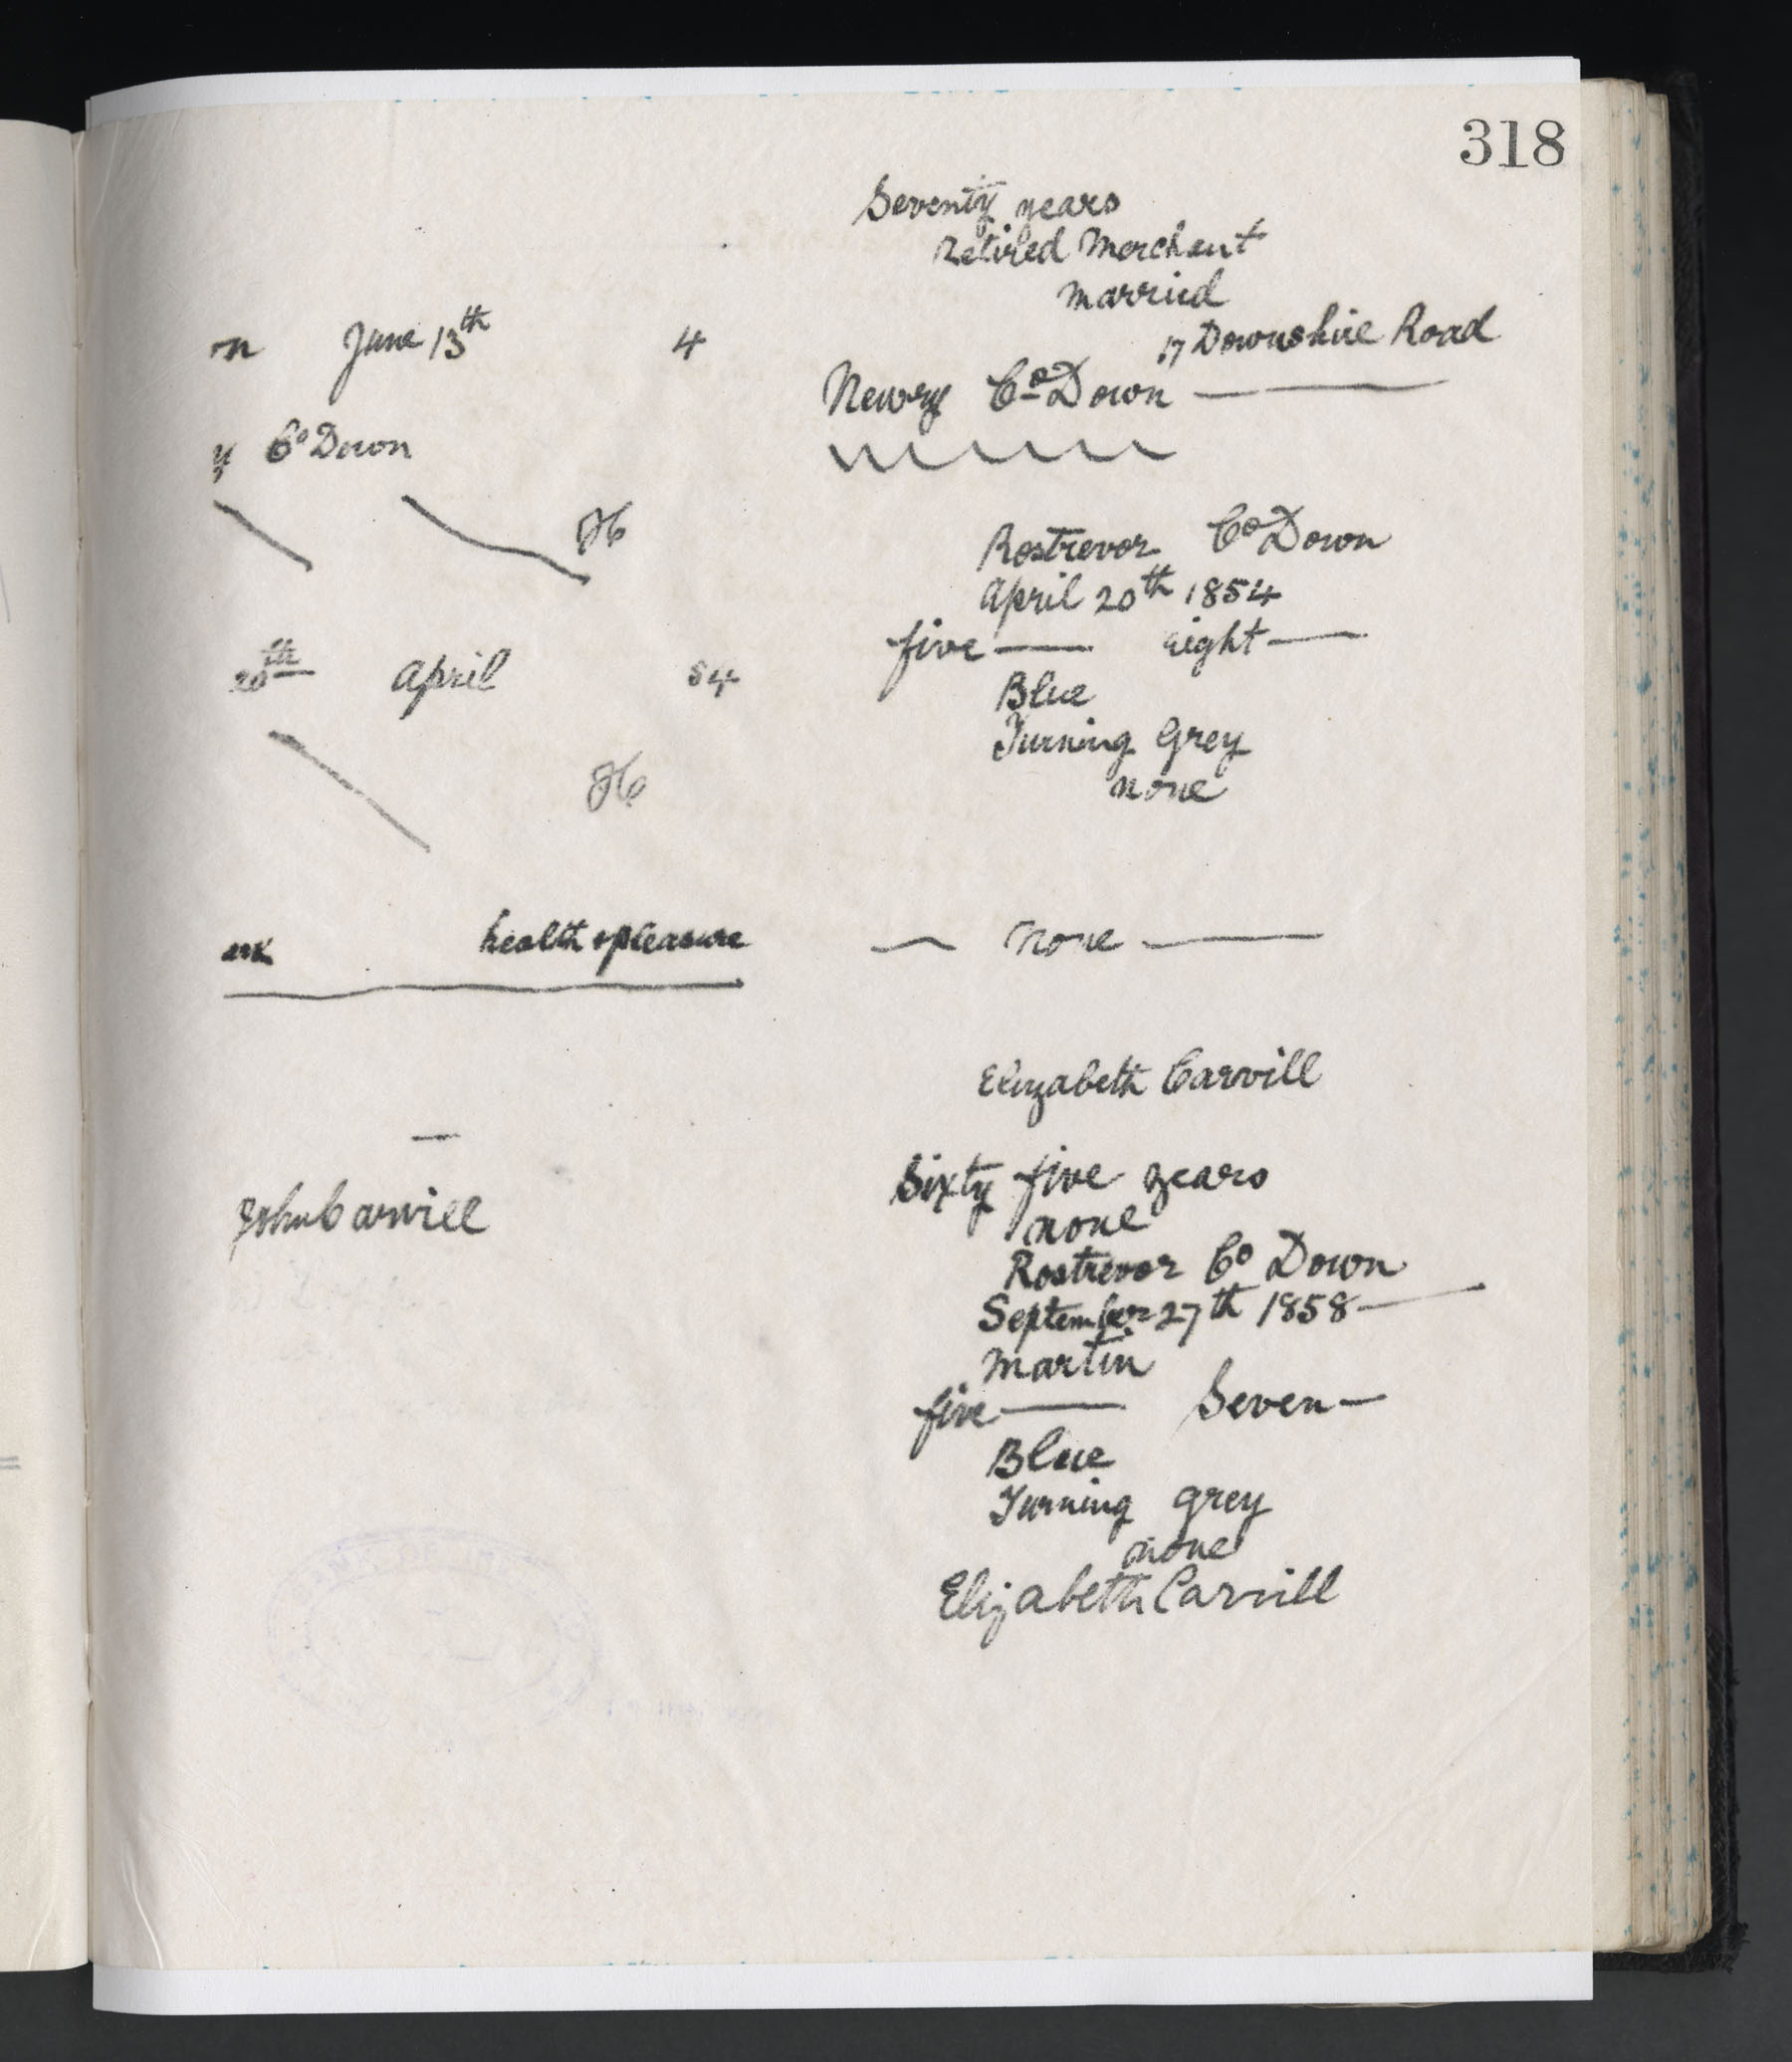 318
Seventy years
Retired Merchant
married
17 Downshire Road
Newry Co Down
on June 13th 4
y Co Down
JC
20th April 54
JC
health & pleasure
John Carvill
Rostrevor Co Down
April 20th 1854
five eight
Blue
Turning Grey
none
none
Elizabeth Carvill
Sixty five years
none
Rostrevor Co Down
September 27th 1858
Martin
five Seven
Blue
Turning grey
none
Elizabeth Carvill